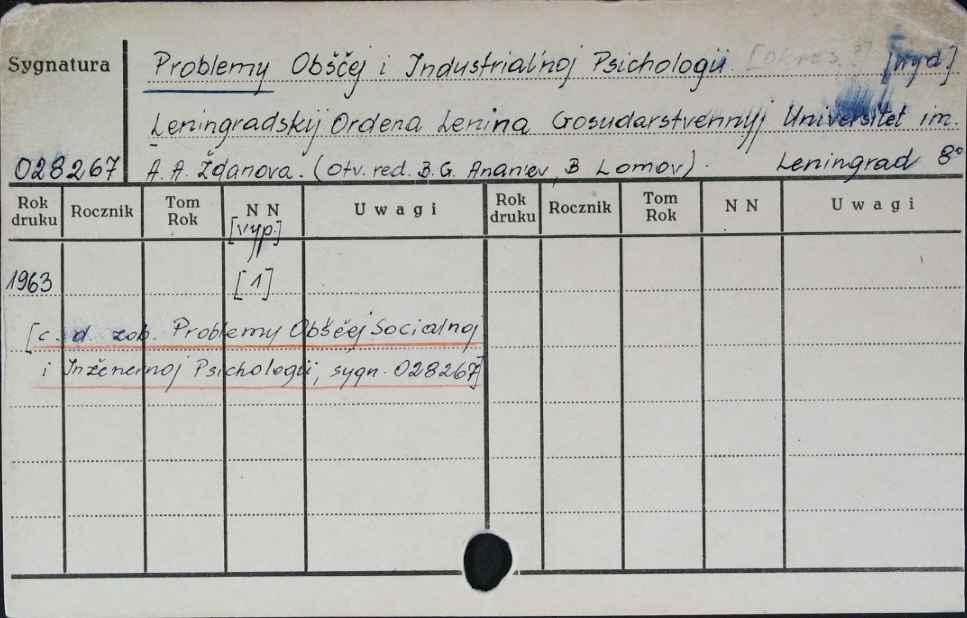 Sygnatura
Problemy Obščej i Industrial'noj Psichologii. [okres. ?] [wyd]
Leningradskij Ordena Lenina Gosudarstvennyj Universitet im.
028267 A. A. Ždanova. (Otv. red. B. G. Anan'ev, B Lomov). Leningrad 8°
Rok druku Rocznik Tom Rok N N U w a g i Rok druku Rocznik Tom Rok N N U w a g i
[vyp.]
1963 [1]
[c. d. zob. Problemy Obščej Socialnoj
i Inženernoj Psichologii, sygn. 028267]